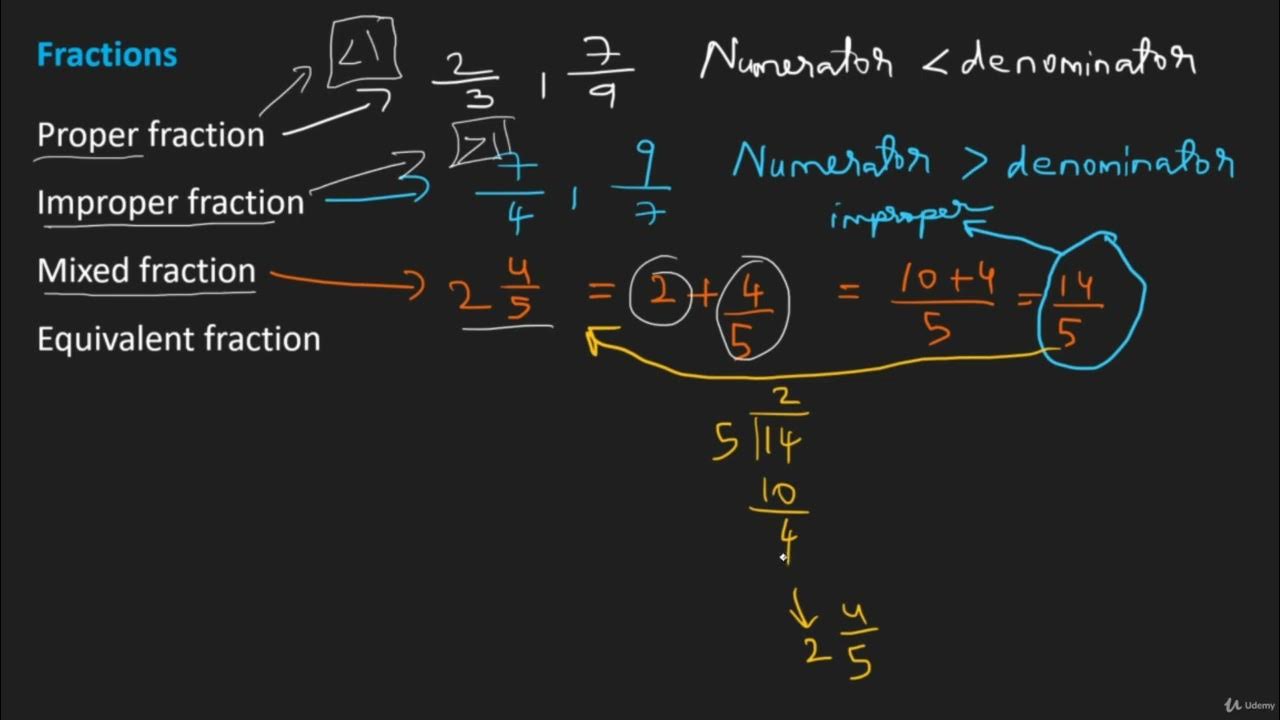 Fractions
<1
2/3 , 7/9 Numerator < denominator
Proper fraction
>1
Improper fraction
7/4 , 9/7 Numerator > denominator
improper
Mixed fraction
2 4/5 = 2 + 4/5 = 10+4/5 = 14/5
Equivalent fraction
2
5 14
10
4
2 4/5
Udemy